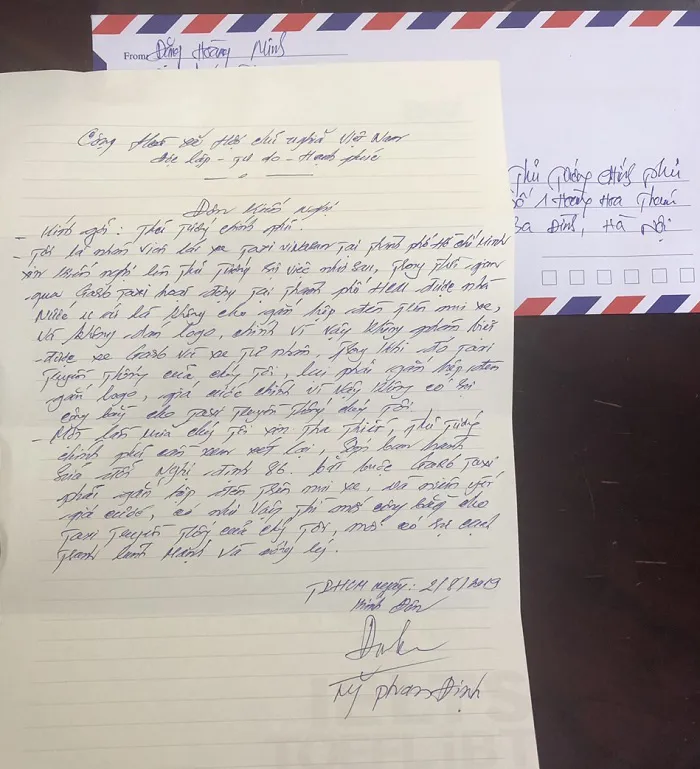 From: Đặng Hoàng Minh
Thủ Tướng Chính Phủ
Số 1 Hoàng Hoa Thám
Ba Đình, Hà Nội
Cộng Hoà xã Hội chủ nghĩa Việt Nam
Độc lập - Tự do - Hạnh phúc
Đơn Kiến Nghị
- Kính gởi: Thủ Tướng chính phủ.
- Tôi là nhân viên lái xe Taxi vinasun Tại Thành phố Hồ Chí Minh
xin kiến nghị lên Thủ Tướng sự việc như sau, Trong Thời gian
qua Grab Taxi hoạt động Tại Thành phố HCM được nhà
Nước là không cho gắn hộp đèn Trên mui xe,
và không dán logo, chính vì vậy không phân biệt
được xe Grab và xe Tư nhân, Trong khi đó Taxi
Truyền Thống của chúng Tôi, lại phải gắn hộp đèn
gắn logo, giá cước chính vì vậy không có sự
công bằng cho Taxi Truyền Thống chúng Tôi.
- Một lần nữa chúng Tôi xin Tha Thiết, Thủ Tướng
chính phủ cần xem xét lại, ban hành
Sửa đổi Nghị định 86. bắt buộc Grab Taxi
phải gắn hộp đèn Trên mui xe, và niêm yết
giá cước, có như vậy Thì mới công bằng cho
Taxi Truyền Thống của chúng Tôi, mới có sự cạnh
Tranh lành Mạnh và
TPHCM ngày: 2/8/2019
Phan Định